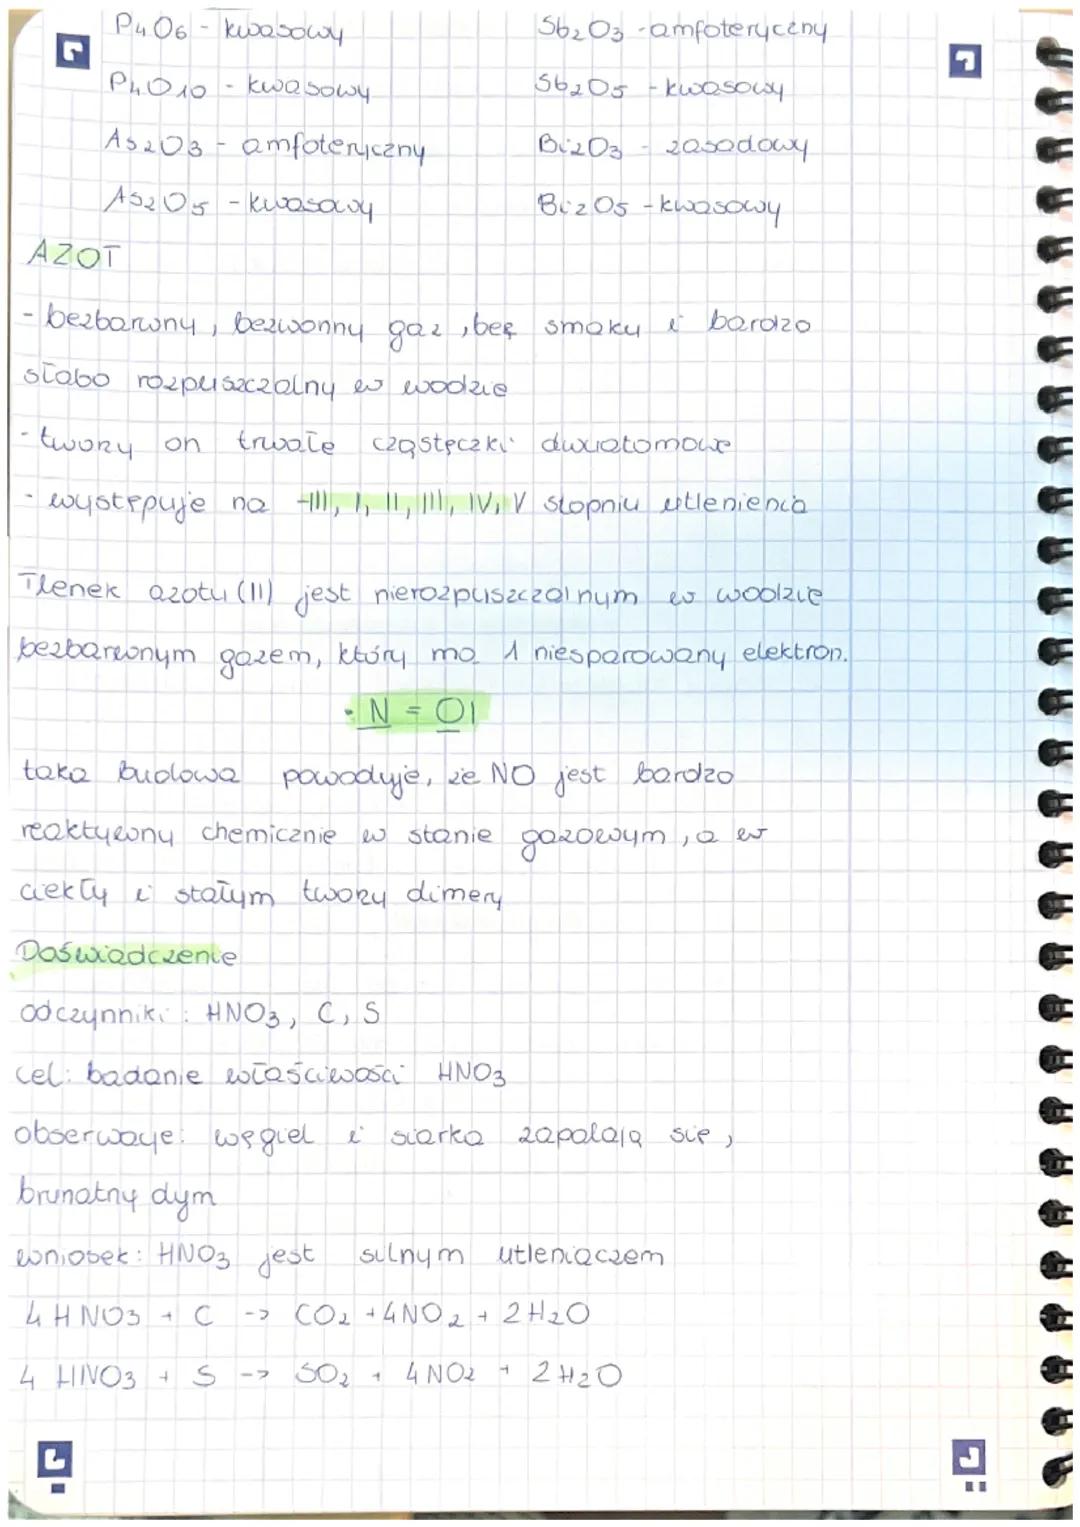 P4O6 - kwasowy
Sb2O3 - amfoteryczny
P4O10 - kwasowy
Sb2O5 - kwasowy
As2O3 - amfoteryczny
Bi2O3 - zasadowy
As2O5 - kwasowy
Bi2O5 - kwasowy
AZOT
- bezbarwny, bezwonny gaz, bez smaku i bardzo
słabo rozpuszczalny w wodzie
- tworzy on trwałe cząsteczki dwuatomowe
- występuje na -III, I, II, III, IV, V stopniu utlenienia
Tlenek azotu (II) jest nierozpuszczalnym w wodzie
bezbarwnym gazem, który ma 1 niesparowany elektron.
· N = O|
taka budowa powoduje, że NO jest bardzo
reaktywny chemicznie w stanie gazowym, a w
ciekły i stałym tworzy dimery
Doświadczenie
odczynniki: HNO3, C, S
cel: badanie właściwości HNO3
obserwacje: węgiel i siarka zapalają się,
brunatny dym
wniosek: HNO3 jest silnym utleniaczem
4 HNO3 + C -> CO2 + 4NO2 + 2H2O
4 HNO3 + S -> SO2 + 4NO2 + 2H2O